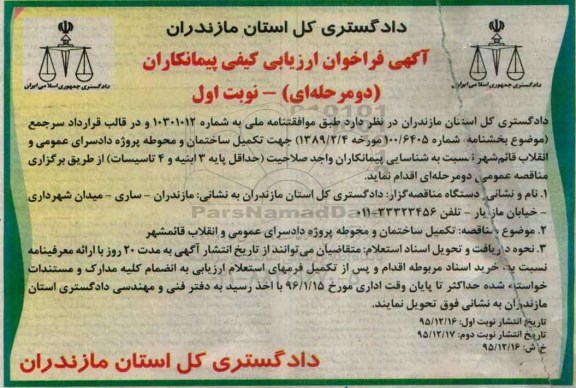 دادگستری کل استان مازندران
آگهی فراخوان ارزیابی کیفی پیمانکاران
(دومرحله‌ای) – نوبت اول
دادگستری جمهوری اسلامی ایران
دادگستری جمهوری اسلامی ایران
دادگستری کل استان مازندران در نظر دارد طبق موافقتنامه ملی به شماره ۱۰۳۰۱۰۱۲ و در قالب قرارداد سرجمع
(موضوع بخشنامه شماره ۱۰۰/۶۴۰۵ مورخه ۱۳۸۹/۲/۴) جهت تکمیل ساختمان و محوطه پروژه دادسرای عمومی و
انقلاب قائم‌شهر نسبت به شناسایی پیمانکاران واجد صلاحیت (حداقل پایه ۳ ابنیه و ۴ تاسیسات) از طریق برگزاری
مناقصه عمومی دومرحله‌ای اقدام نماید.
۱. نام و نشانی دستگاه مناقصه‌گزار: دادگستری کل استان مازندران به نشانی: مازندران – ساری – میدان شهرداری
– خیابان مازیار – تلفن ۳۳۳۲۳۴۵۶–۰۱۱
۲. موضوع مناقصه: تکمیل ساختمان و محوطه پروژه دادسرای عمومی و انقلاب قائمشهر
۳. نحوه دریافت و تحویل اسناد استعلام: متقاضیان می‌توانند از تاریخ انتشار آگهی به مدت ۲۰ روز با ارائه معرفینامه
نسبت به خرید اسناد مربوطه اقدام و پس از تکمیل فرمهای استعلام ارزیابی به انضمام کلیه مدارک و مستندات
خواسته شده حداکثر تا پایان وقت اداری مورخ ۹۶/۱/۱۵ با اخذ رسید به دفتر فنی و مهندسی دادگستری استان
مازندران به نشانی فوق تحویل نمایند.
تاریخ انتشار نوبت اول: ۹۵/۱۲/۱۶
تاریخ انتشار نوبت دوم: ۹۵/۱۲/۱۷
خ ش: ۹۵/۱۲/۱۶
دادگستری کل استان مازندران